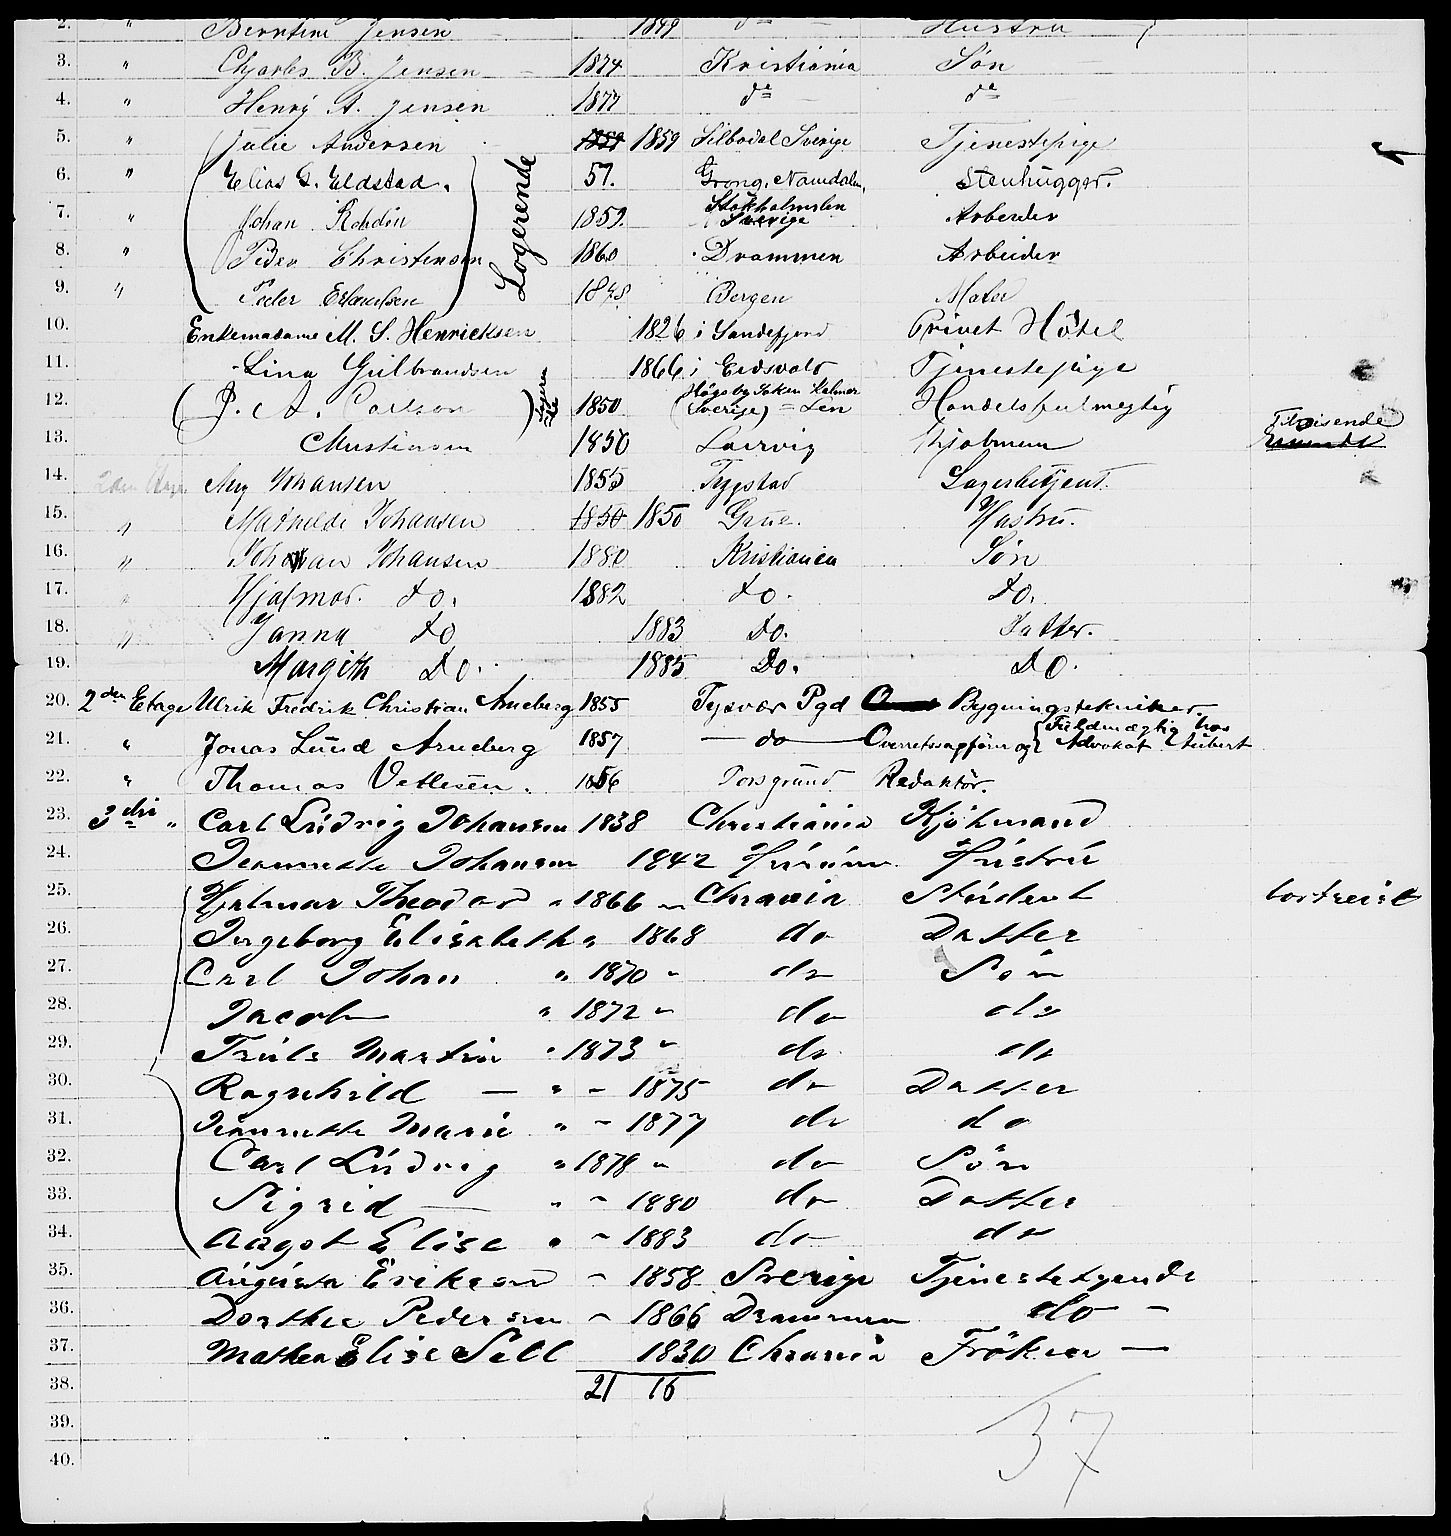 2. " Berntine Jensen 1849 do — Hustru
3. " Charles B. Jensen 1874 Kristiania Søn
4. " Henry A. Jensen 1877 do do
5. " Julie Andersen 1859 1859 Silbodal Sverige Tjenestepige
6. " Elias G. Eldstad. 57. Grong, Namdalen, Stenhugger.
7. " Johan Rohdin 1859. Stokholmslen Sverige Arbeider
8. " Peder Christensen 1860 Drammen Arbeider
9. " Peder Erlandsen 1848 Bergen Maler
Logerende
10. Enkemadame M. S. Henricksen 1826 i Sandefjord Privet Hôtel
11. Lina Gulbrandsen 1866 i Eidsvold Tjenestepige
12. J. A. Carlson Logerende 1850 Högsby Soken Kalmar (Sverige) = Len Handelsfulmegtig
13. Christensen 1850 Laurvig Kjøbman Tilreisende
14. 2den Etage Aug Johansen 1855 Trygstad Lagerbetjent.
15. " Mathilde Johansen 1850 1850 Grue. Hustru.
16. " Johan Johansen 1880 Kristiania Søn
17. " Hjalmar. do. 1882 do. do.
18. " Janna do 1883 do. Datter.
19. Margith Do. 1885 Do. DO.
20. 2den Etage Ulrik Fredrik Christian Arneberg 1855 Tysvær Pgd Bygningstekniker
21. " Jonas Lund Arneberg 1857 — do — Overretssagfører og Fuldmægtig hos Advokat Hubert
22. " Thomas Vetlesen. 1856 Porsgrund. Redaktör.
23. 3die " Carl Ludvig Johansen 1838 Christiania Kjöbmand
24. Jeannette Johansen 1842 Hustru
25. Hjalmar Theodor " 1866 " Chrania Student bortreist
26. Ingeborg Elisabeth " 1868 do Datter
27. Carl Johan " 1870 " do Søn
28. Jacob " 1872 " do do
29. Truls Martin " 1873 " do do
30. Ragnhild — " " 1875 do Datter
31. Jeannette Marie " " 1877 do do
32. Carl Ludvig " 1878 " do Sön
33. Sigrid — " " 1880 do Datter
34. Aagot Elise " " 1883 do do
35. Augusta Erikson " 1858 Sverige Tjenestetyende
36. Dorthee Pedersen " 1866 Drammen do —
37. Mathea Elise Sell 1830 Chrania Fröken —
38. 21 16
39.
40.
37